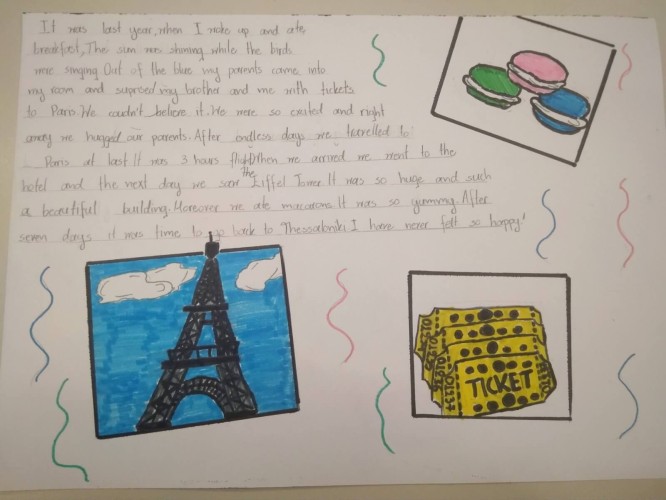 It was last year, when I woke up and ate
breakfast, The sun was shining while the birds
were singing Out of the blue my parents came into
my room and suprced my brother and me with tickets
to Paris. We coudn't believe it. We were so excited and right
away we hugged our parents. After endless days we travelled to
Paris at last It was 3 hours flight, then we arrived we went to the
hotel and the next day we saw the Eiffel Tower. It was so huge and such
a beautiful building, Moreover we ate macarons. It was so yummy. After
seven days it was time to go back to Thessaloniki I have never felt so happy!
TICKET